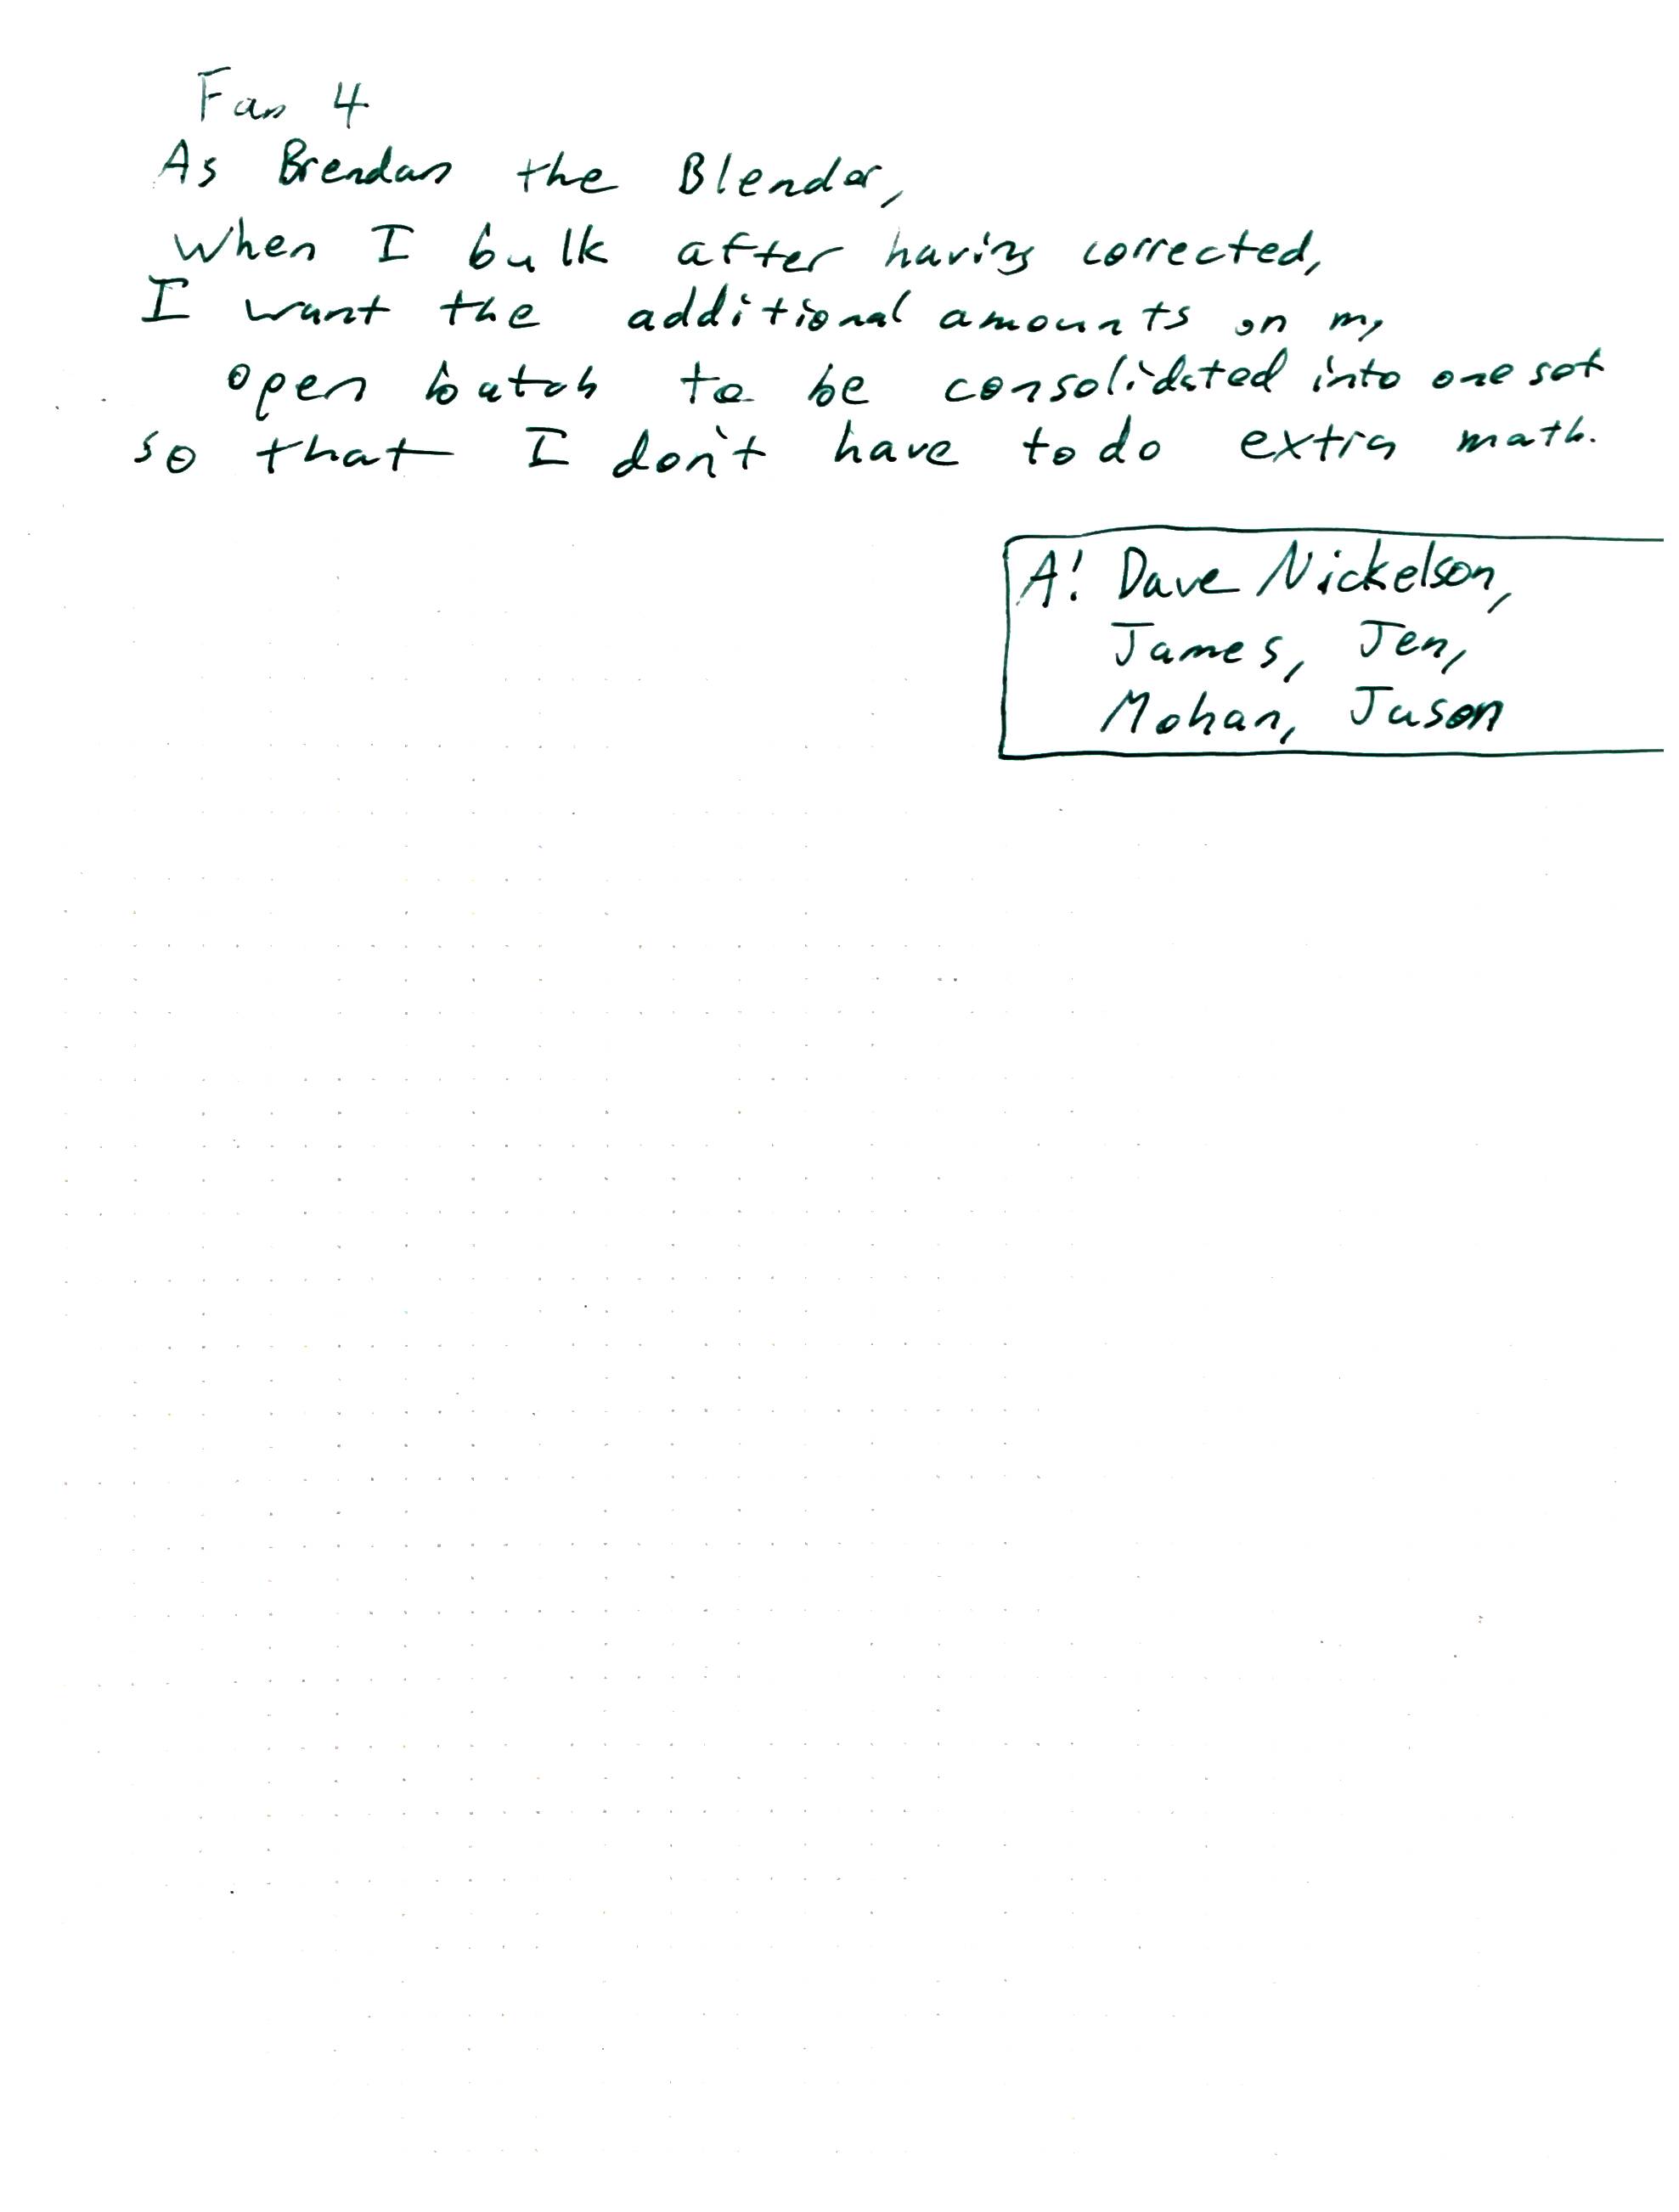 Fan 4
As Brendan the Blender,
when I bulk after having corrected,
I want the additional amounts on my
open batch to be consolidated into one set
so that I don't have to do extra math.
A: Dave Nickelson,
James, Jen,
Mohan, Jason